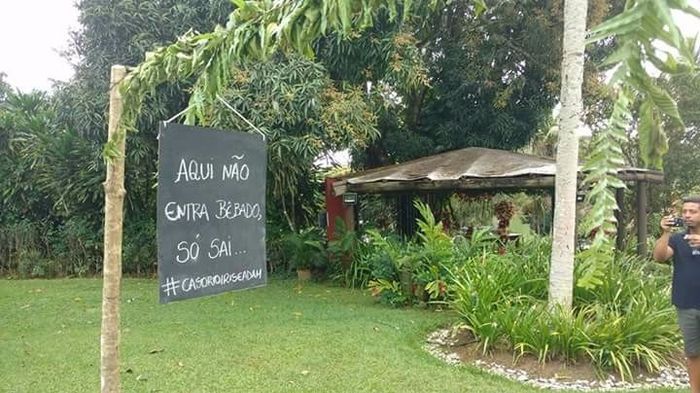 AQUI NÃO
ENTRA BÊBADO,
SÓ SAI...
#CASORIOIRISEADAM